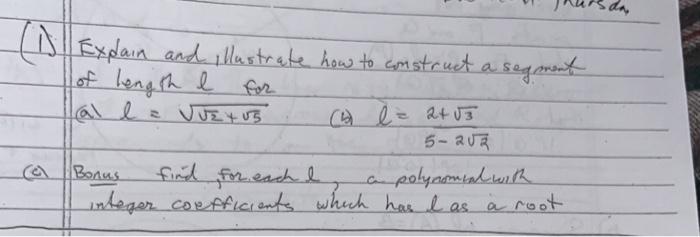 Thursda
(1) Explain and illustrate how to construct a segment
of length l for
(a) l = √(√2 + √5) (b) l = (2+√3)/(5-2√2)
(c) Bonus find, for each l, a polynomial with
integer coefficients which has l as a root